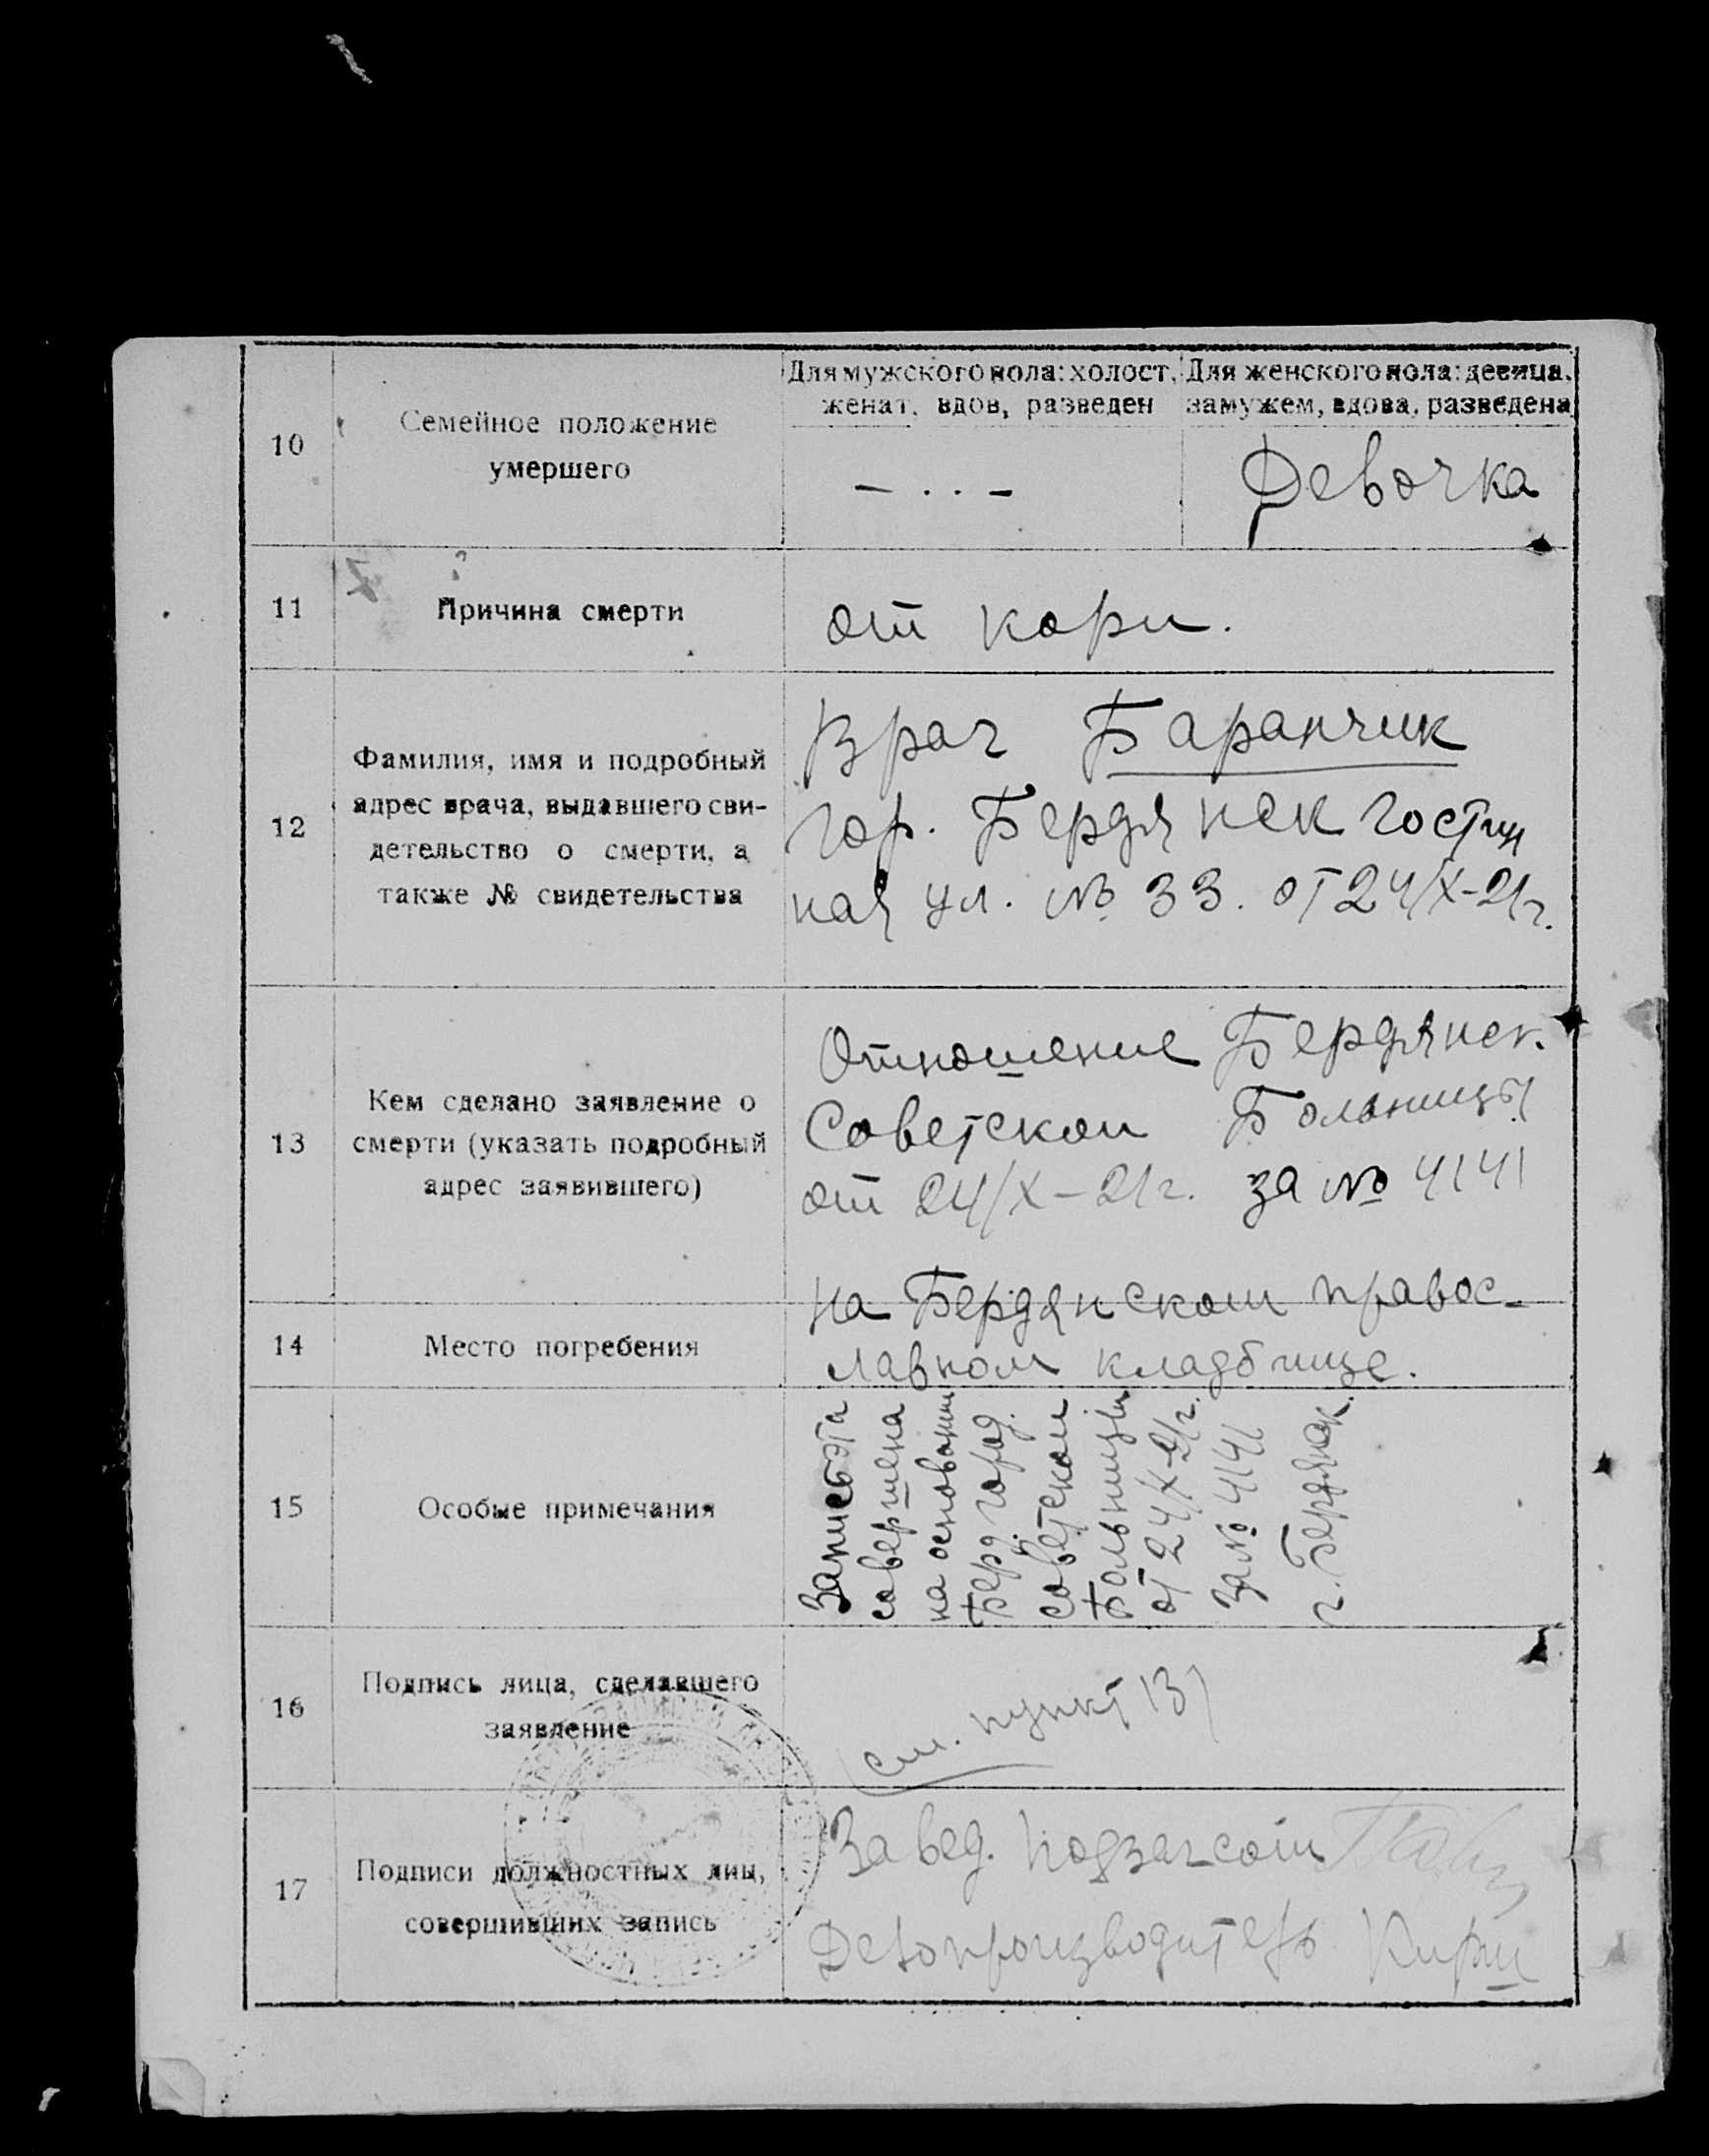 10
Семейное положение
умершего
Для мужского пола: холост,
женат, вдов, разведен
Для женского пола: девица,
замужем, вдова, разведена
— . . —
Девочка
11
Причина смерти
от кори.
12
Фамилия, имя и подробный
адрес врача, выдавшего сви-
детельство о смерти, а
также № свидетельства
Врач Баранчик
гор. Бердянск Гостин
ная ул. № 33. от 24/X-21г.
13
Кем сделано заявление о
смерти (указать подробный
адрес заявившего)
Отношение Бердянск.
Советской Больницы
от 24/X-21г. за № 4141
14
Место погребения
на Бердянском правос-
лавном кладбище.
15
Особые примечания
Запись эта
совершена
на основании
Берд. город.
советской
Больницы
от 24/X-21г.
за № 4141
г. Бердянск.
16
Подпись лица, сделавшего
заявление
(см. пункт 13)
17
Подписи должностных лиц,
совершивших запись
Завед. Подзагсом
Делопроизводитель Кирш